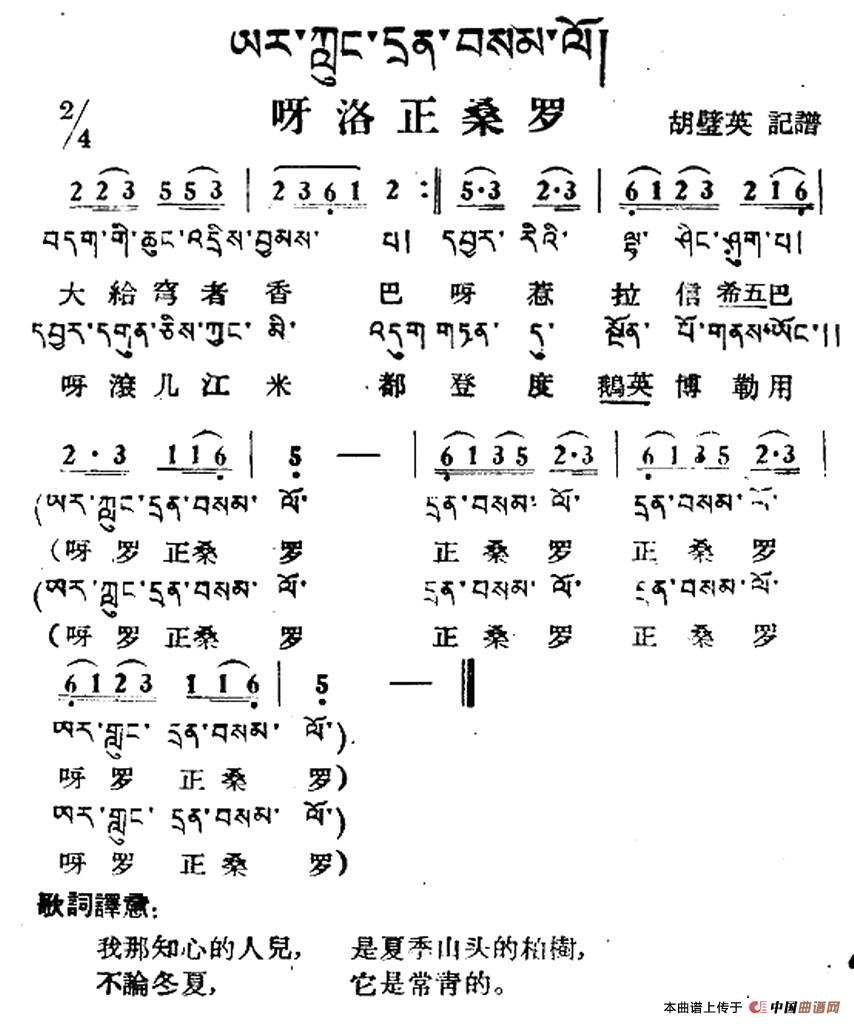 ཨར་ཀླུང་དྲན་བསམ་ལོ།
呀洛正桑罗
2/4
胡璧英 記譜
2 2 3 5 5 3 | 2 3 6 1 2 :|| 5·3 2·3 | 6 1 2 3 2 1 6 |
བདག་གི་ཆུང་འདྲིས་བྱམས་ པ། དབྱར་ རིའི་ ལྟ་ ཤིང་ཤུག་པ།
大給穹者香 巴呀惹 拉信希五巴
དབྱར་དགུན་ཅིས་ཀྱང་མི་ འདུག གཏན་ དུ་ སྔོན་ པོ་གནས་ཡོང་།།
呀滾几江米 都登度 鵝英博勒用
2·3 1 1 6 | 5 — | 6 1 3 5 2·3 | 6 1 3 5 2·3 |
(ཨར་ཀླུང་དྲན་བསམ་ ལོ་ དྲན་བསམ་ ལོ་ དྲན་བསམ་ ལོ་
(呀罗正桑 罗 正桑罗 正桑罗
(ཨར་ཀླུང་དྲན་བསམ་ ལོ་ དྲན་བསམ་ ལོ་ དྲན་བསམ་ལོ་
(呀罗正桑 罗 正桑罗 正桑罗
6 1 2 3 1 1 6 | 5 — ||
ཨར་གླུང་ དྲན་བསམ་ ལོ་)
呀罗 正桑 罗)
ཨར་གླུང་ དྲན་བསམ་ ལོ་)
呀罗 正桑 罗)
歌詞譯意:
我那知心的人兒, 是夏季山头的柏樹,
不論冬夏, 它是常靑的。
本曲谱上传于 中国曲谱网